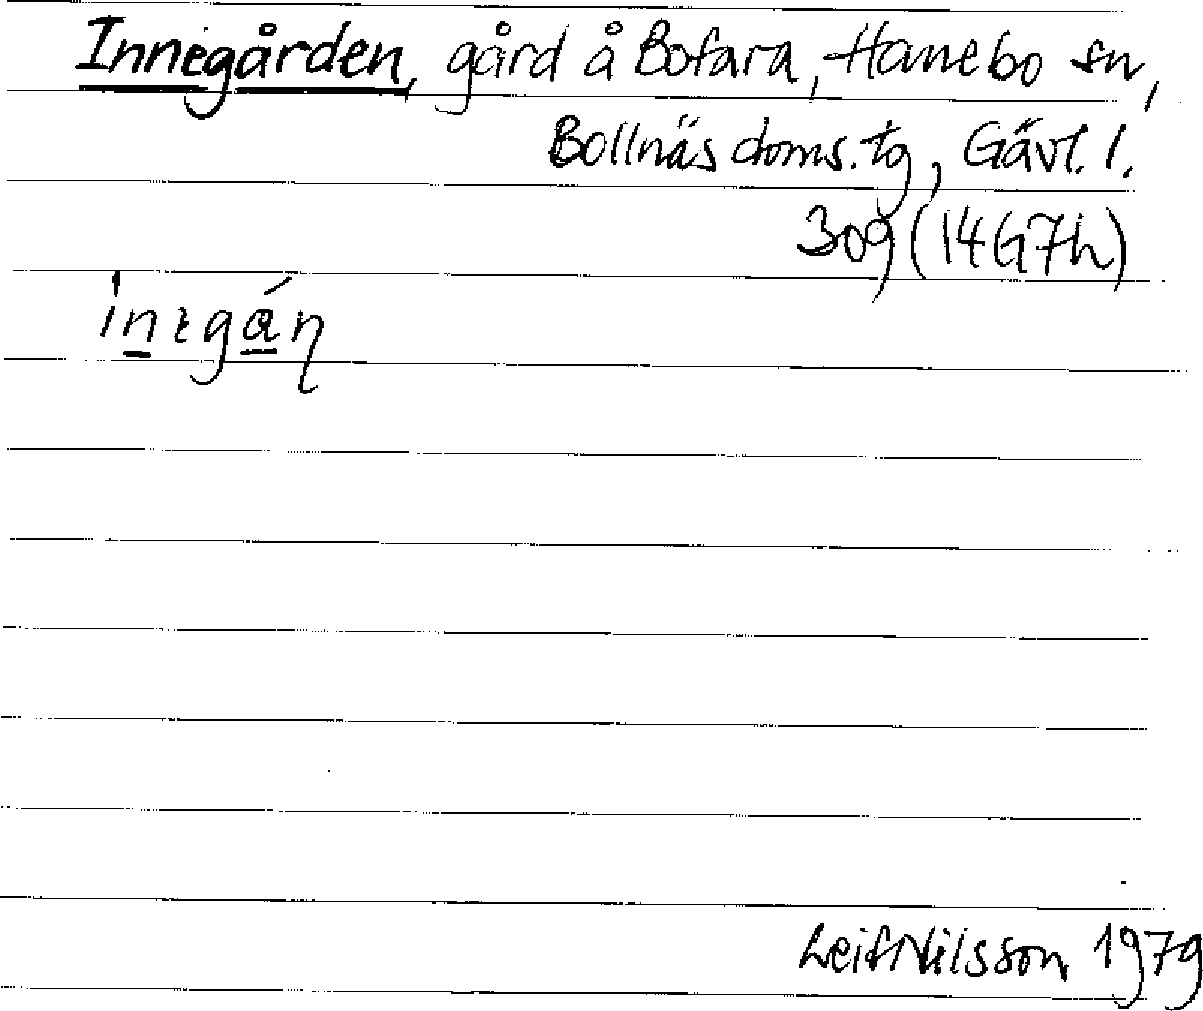 Innegården, gård å Bofara, Hanebo sn,
Bollnäs doms. tg, Gävl. l.
309 (14G7h)
Leif Nilsson 1979